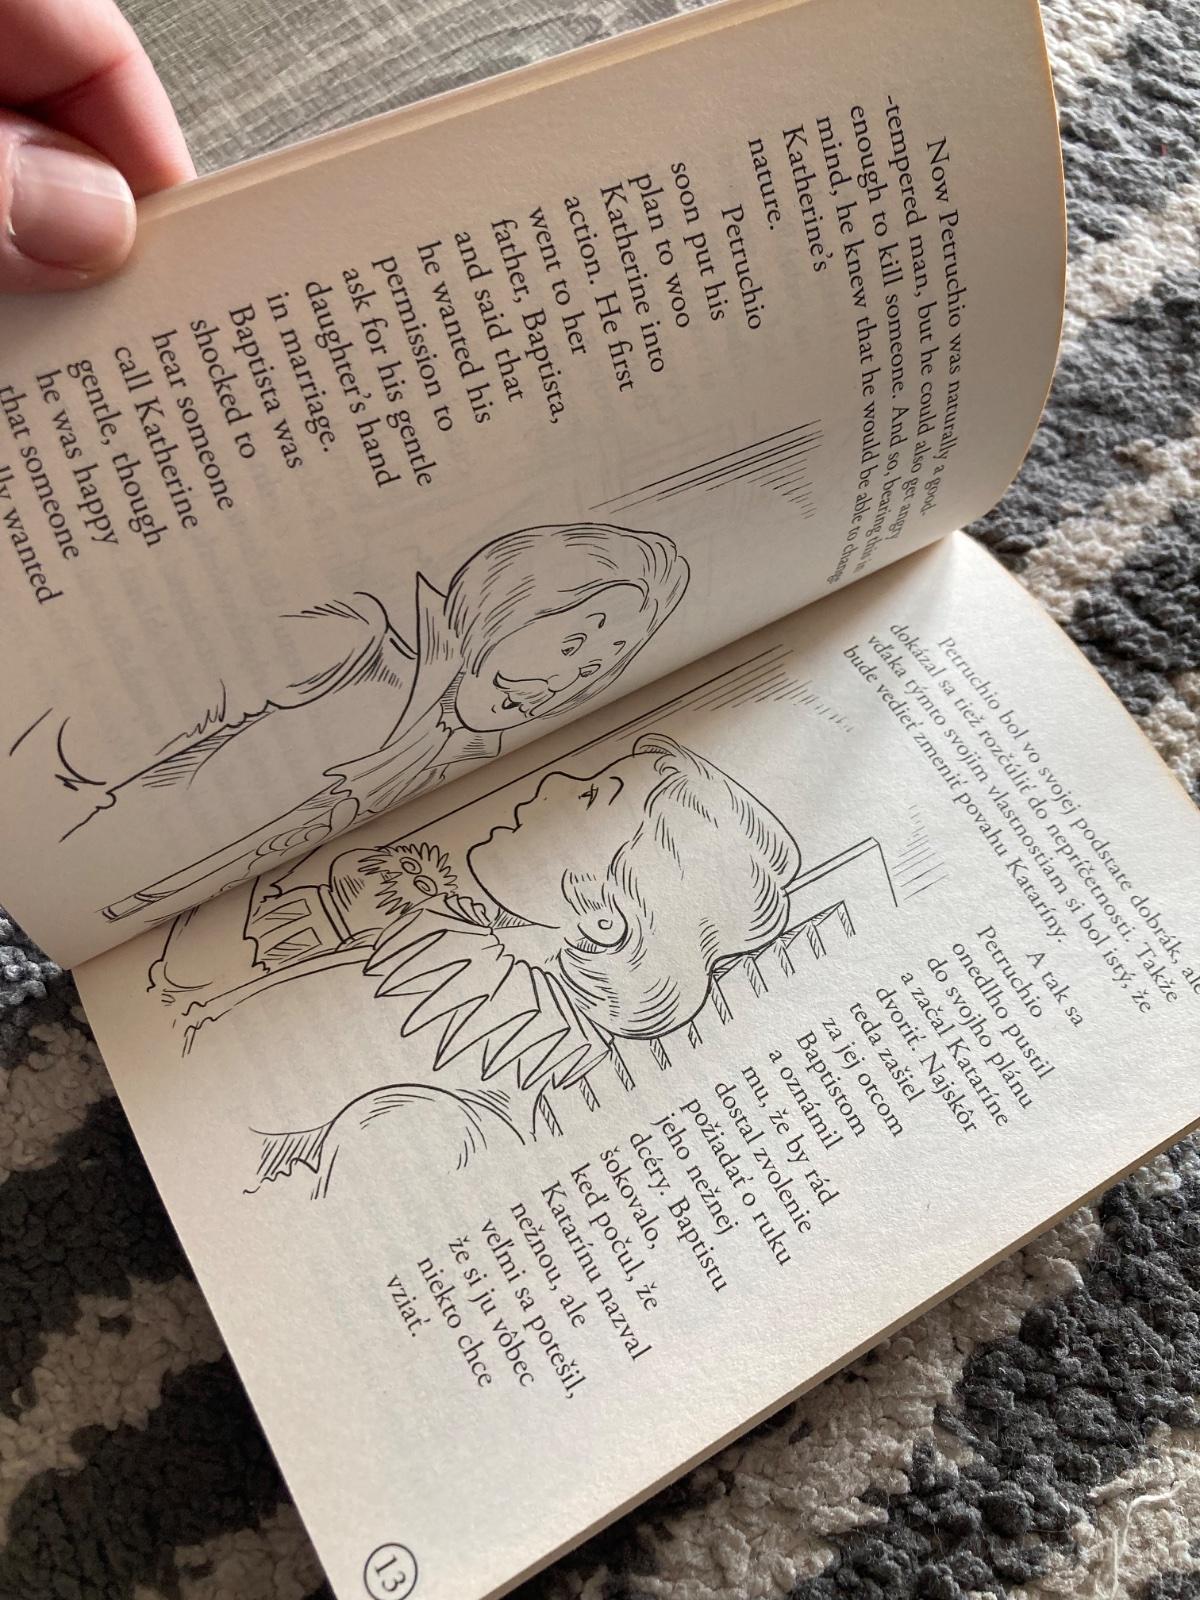 Now Petruchio was naturally a good-
-tempered man, but he could also get angry
enough to kill someone. And so, bearing this in
mind, he knew that he would be able to change
Katherine's
nature.
Petruchio
soon put his
plan to woo
Katherine into
action. He first
went to her
father, Baptista,
and said that
he wanted his
permission to
ask for his gentle
daughter's hand
in marriage.
Baptista was
shocked to
hear someone
call Katherine
gentle, though
he was happy
that someone
wanted
Petruchio bol vo svojej podstate dobrák, ale
dokázal sa tiež rozčúliť do nepríčetnosti. Takže
vďaka týmto svojim vlastnostiam si bol istý, že
bude vedieť zmeniť povahu Kataríny.
A tak sa
Petruchio
onedlho pustil
do svojho plánu
a začal Kataríne
dvoriť. Najskôr
teda zašiel
za jej otcom
Baptistom
a oznámil
mu, že by rád
dostal zvolenie
požiadať o ruku
jeho nežnej
dcéry. Baptistu
šokovalo,
keď počul, že
Katarínu nazval
nežnou, ale
veľmi sa potešil,
že si ju vôbec
niekto chce
vziať.
13